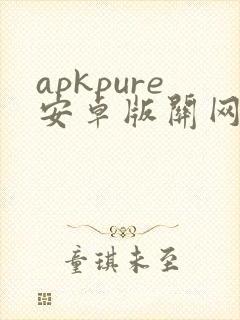 apkpure
安卓版關网
童琪未至